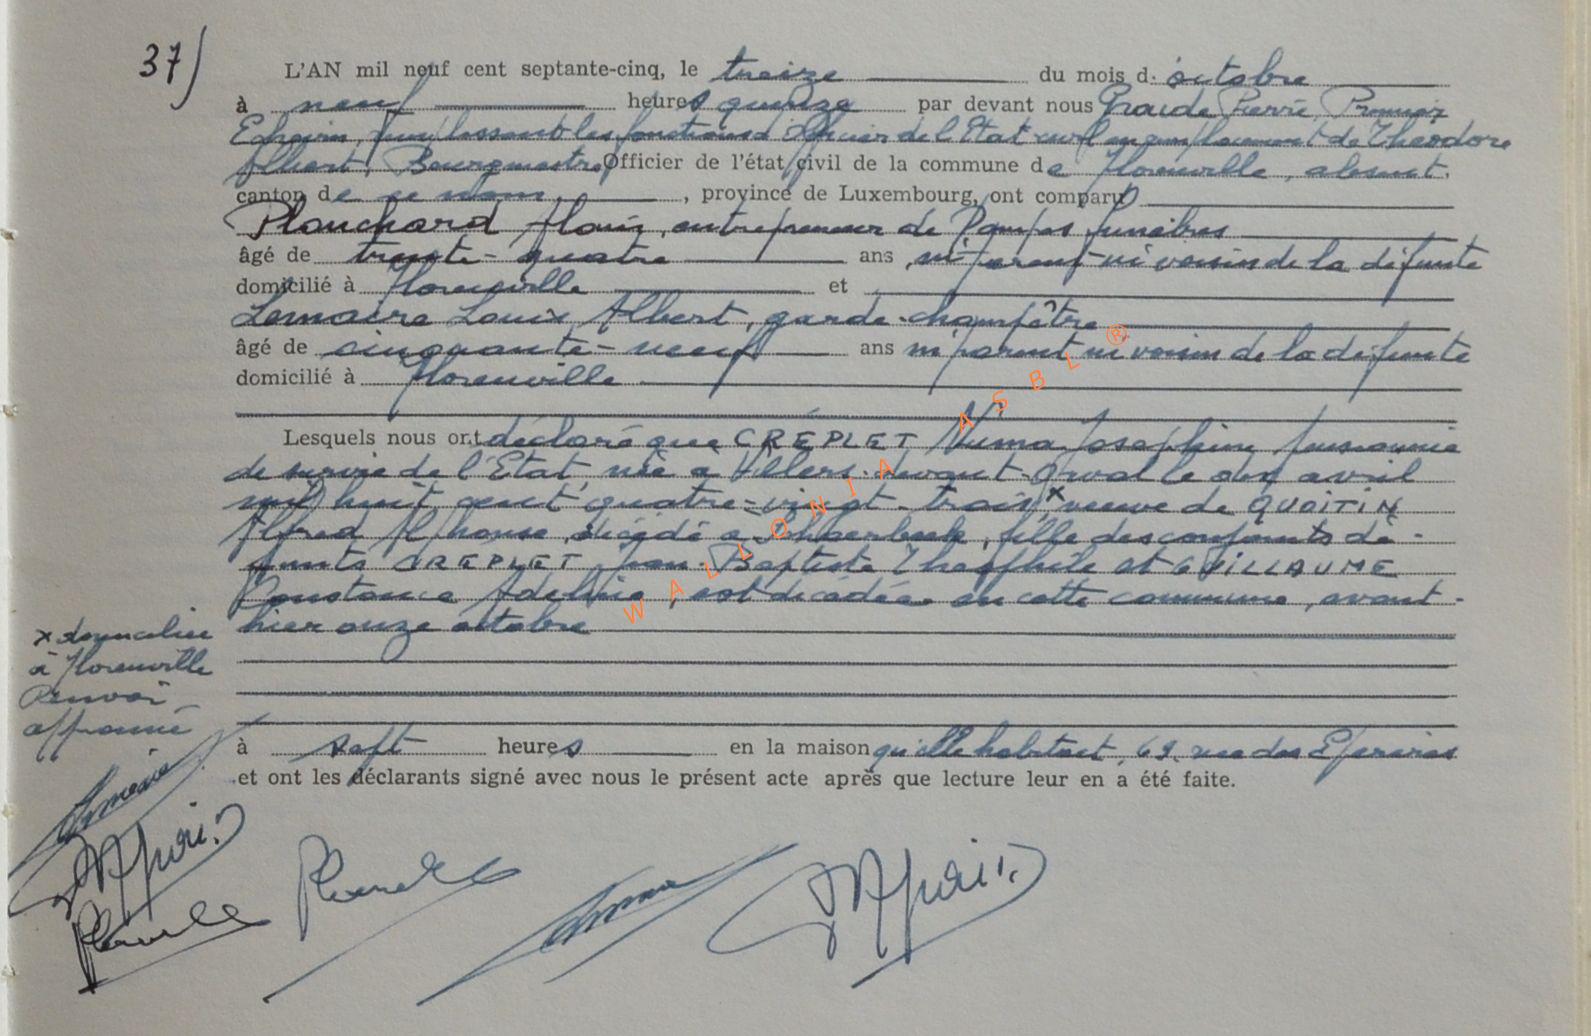 37)
L'AN mil neuf cent septante-cinq, le treize du mois d. octobre
à neuf heures quinze par devant nous Pierre, Premier
Echevin, remplissant les fonctions d'Officier de l'Etat civil en remplacement de Théodore
Albert, Bourgmestre, Officier de l'état civil de la commune de Florenville, absent.
canton de ce nom, province de Luxembourg, ont comparu
Planchard Alain, entrepreneur de Pompes funèbres
âgé de trente-quatre ans, ni parent ni voisin de la défunte
domicilié à Florenville et
Lemaire Louis Albert, garde-champêtre
âgé de cinquante-neuf ans ni parent ni voisin de la défunte
domicilié à Florenville
Lesquels nous ont déclaré que CRÉPLET Numa Joséphine, pensionnée
de survie de l'Etat, née à Villers-devant-Orval le dix avril
mil huit cent quatre-vingt-trois, x veuve de QUOITIN
Alfred Alphonse, décédé à Schaerbeek, fille des conjoints dé-
funts CREPLET Jean-Baptiste Théophile et GUILLAUME
Constance Adeline, est décédée en cette commune, avant-
hier onze octobre
x domiciliée
à Florenville
Renvoi
approuvé
à sept heures en la maison qu'elle habitait, 69, rue des Epeires
et ont les déclarants signé avec nous le présent acte après que lecture leur en a été faite.
WALLONIA ASBL ®